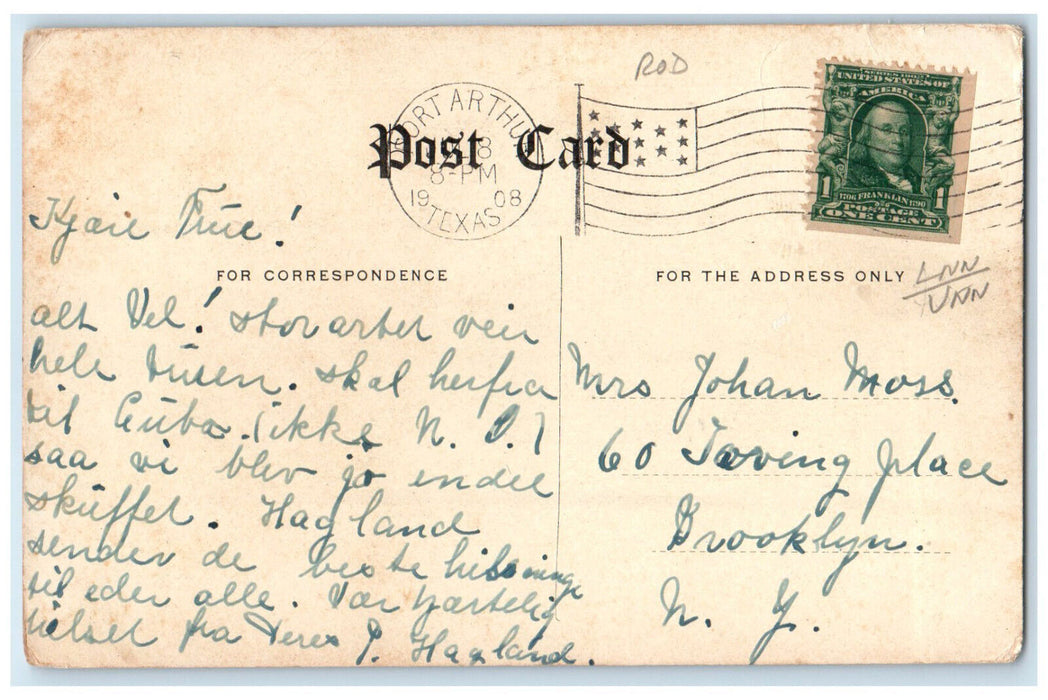 ROD
PORT ARTHUR
8
8-PM
19 08
TEXAS
Post Card
SERIES 1902
UNITED STATES OF
AMERICA
1 1706 FRANKLIN 1790 1
POSTAGE
ONE CENT
Kjære Frue!
FOR CORRESPONDENCE
FOR THE ADDRESS ONLY
LNN
UNN
alt Vel! storartet veir
hele Turen. skal herfra
til Cuba. (ikke N. O.)
saa vi blev jo endel
skuffet. Hagland
sender de beste hilsninge
til eder alle. Vær hjærtelig
hilset fra Deres P. Hagland.
Mrs Johan Moss.
60 Irving place
Brooklyn.
N. Y.